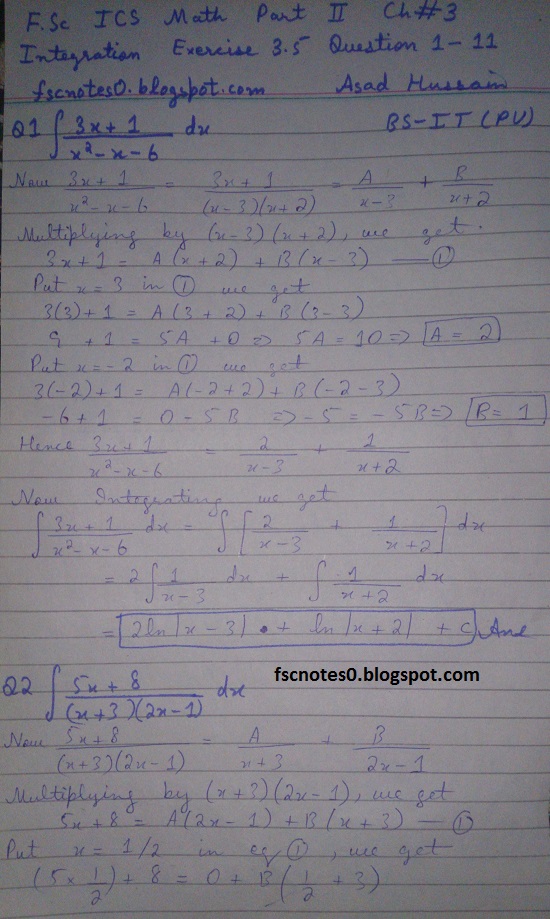 F.Sc ICS Math Part II Ch#3
Integration Exercise 3.5 Question 1-11
fscnotes0.blogspot.com Asad Hussain
BS-IT (PU)
Q1 ∫ (3x+1)/(x²-x-6) dx
Now (3x+1)/(x²-x-6) = (3x+1)/((x-3)(x+2)) = A/(x-3) + B/(x+2)
Multiplying by (x-3)(x+2), we get.
3x+1 = A(x+2) + B(x-3) —①
Put x=3 in ① we get
3(3)+1 = A(3+2) + B(3-3)
9 +1 = 5A +0 => 5A=10 => A= 2
Put x=-2 in ① we get
3(-2)+1 = A(-2+2) + B(-2-3)
-6+1 = 0-5B => -5 = -5B => B= 1
Hence (3x+1)/(x²-x-6) = 2/(x-3) + 1/(x+2)
Now Integrating we get
∫ (3x+1)/(x²-x-6) dx = ∫ [2/(x-3) + 1/(x+2)] dx
= 2∫ 1/(x-3) dx + ∫ 1/(x+2) dx
= 2ln|x-3| + ln|x+2| + c Ans
fscnotes0.blogspot.com
Q2 ∫ (5x+8)/((x+3)(2x-1)) dx
Now (5x+8)/((x+3)(2x-1)) = A/(x+3) + B/(2x-1)
Multiplying by (x+3)(2x-1), we get
5x+8 = A(2x-1) + B(x+3) —①
Put x = 1/2 in eq ①, we get
(5×1/2) + 8 = 0 + B(1/2 + 3)